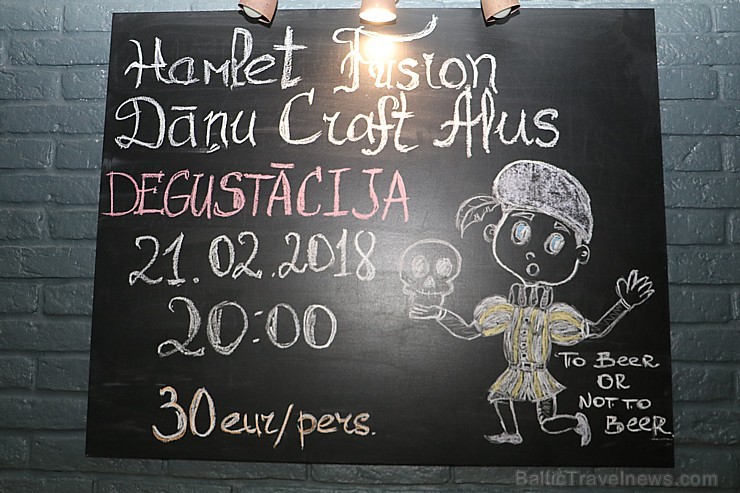 Hamlet Fusion
Dāņu Craft Alus
DEGUSTĀCIJA
21.02.2018
20:00
30 eur/pers.
To Beer
OR
NOT TO
BEER
BalticTravelnews.com